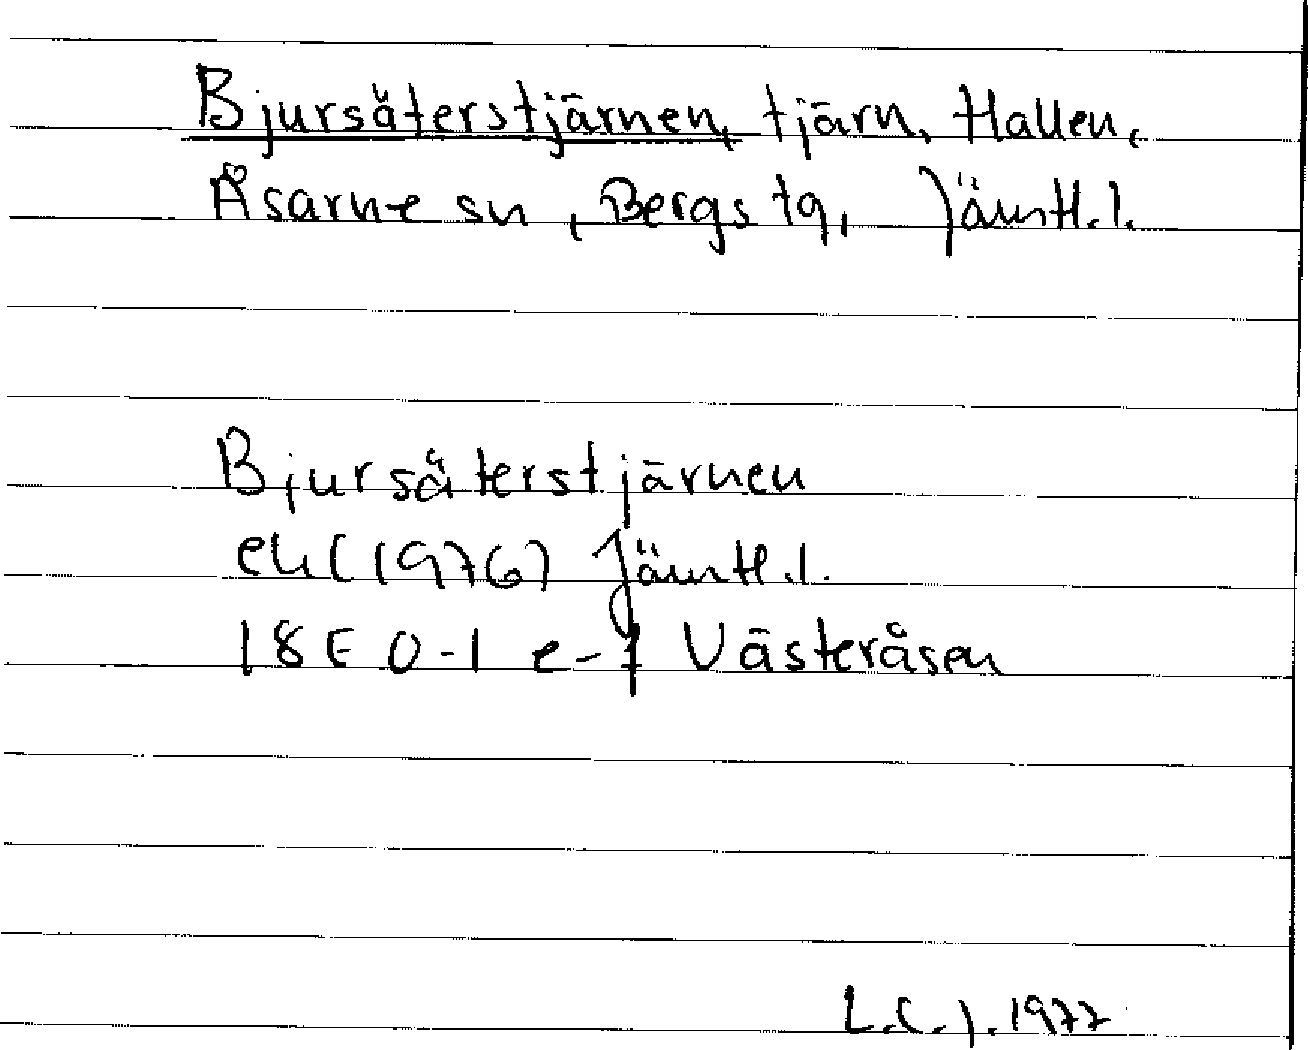 Bjursäterstjärnen, tjärn, Hallen,
Åsarne sn, Bergs tg, Jämtl.l.
Bjursäterstjärnen
ek (1976) Jämtl.l.
18E 0-1 e-f Västeråsen
L.C.J. 1977